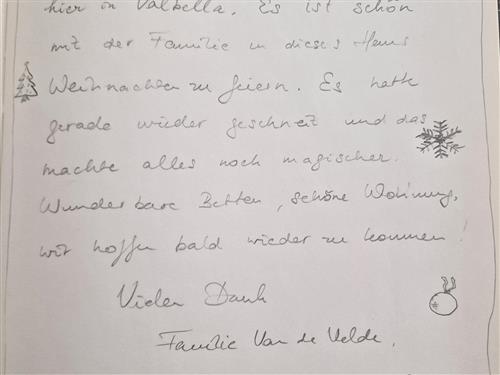 hier in Valbella. Es ist schön
mit der Familie in dieses Haus
Weihnachten zu feiern. Es hatte
gerade wieder geschneit und das
machte alles noch magischer.
Wunderbare Betten, schöne Wohnung,
wir hoffen bald wieder zu kommen!
Vielen Dank
Familie Van de Velde.